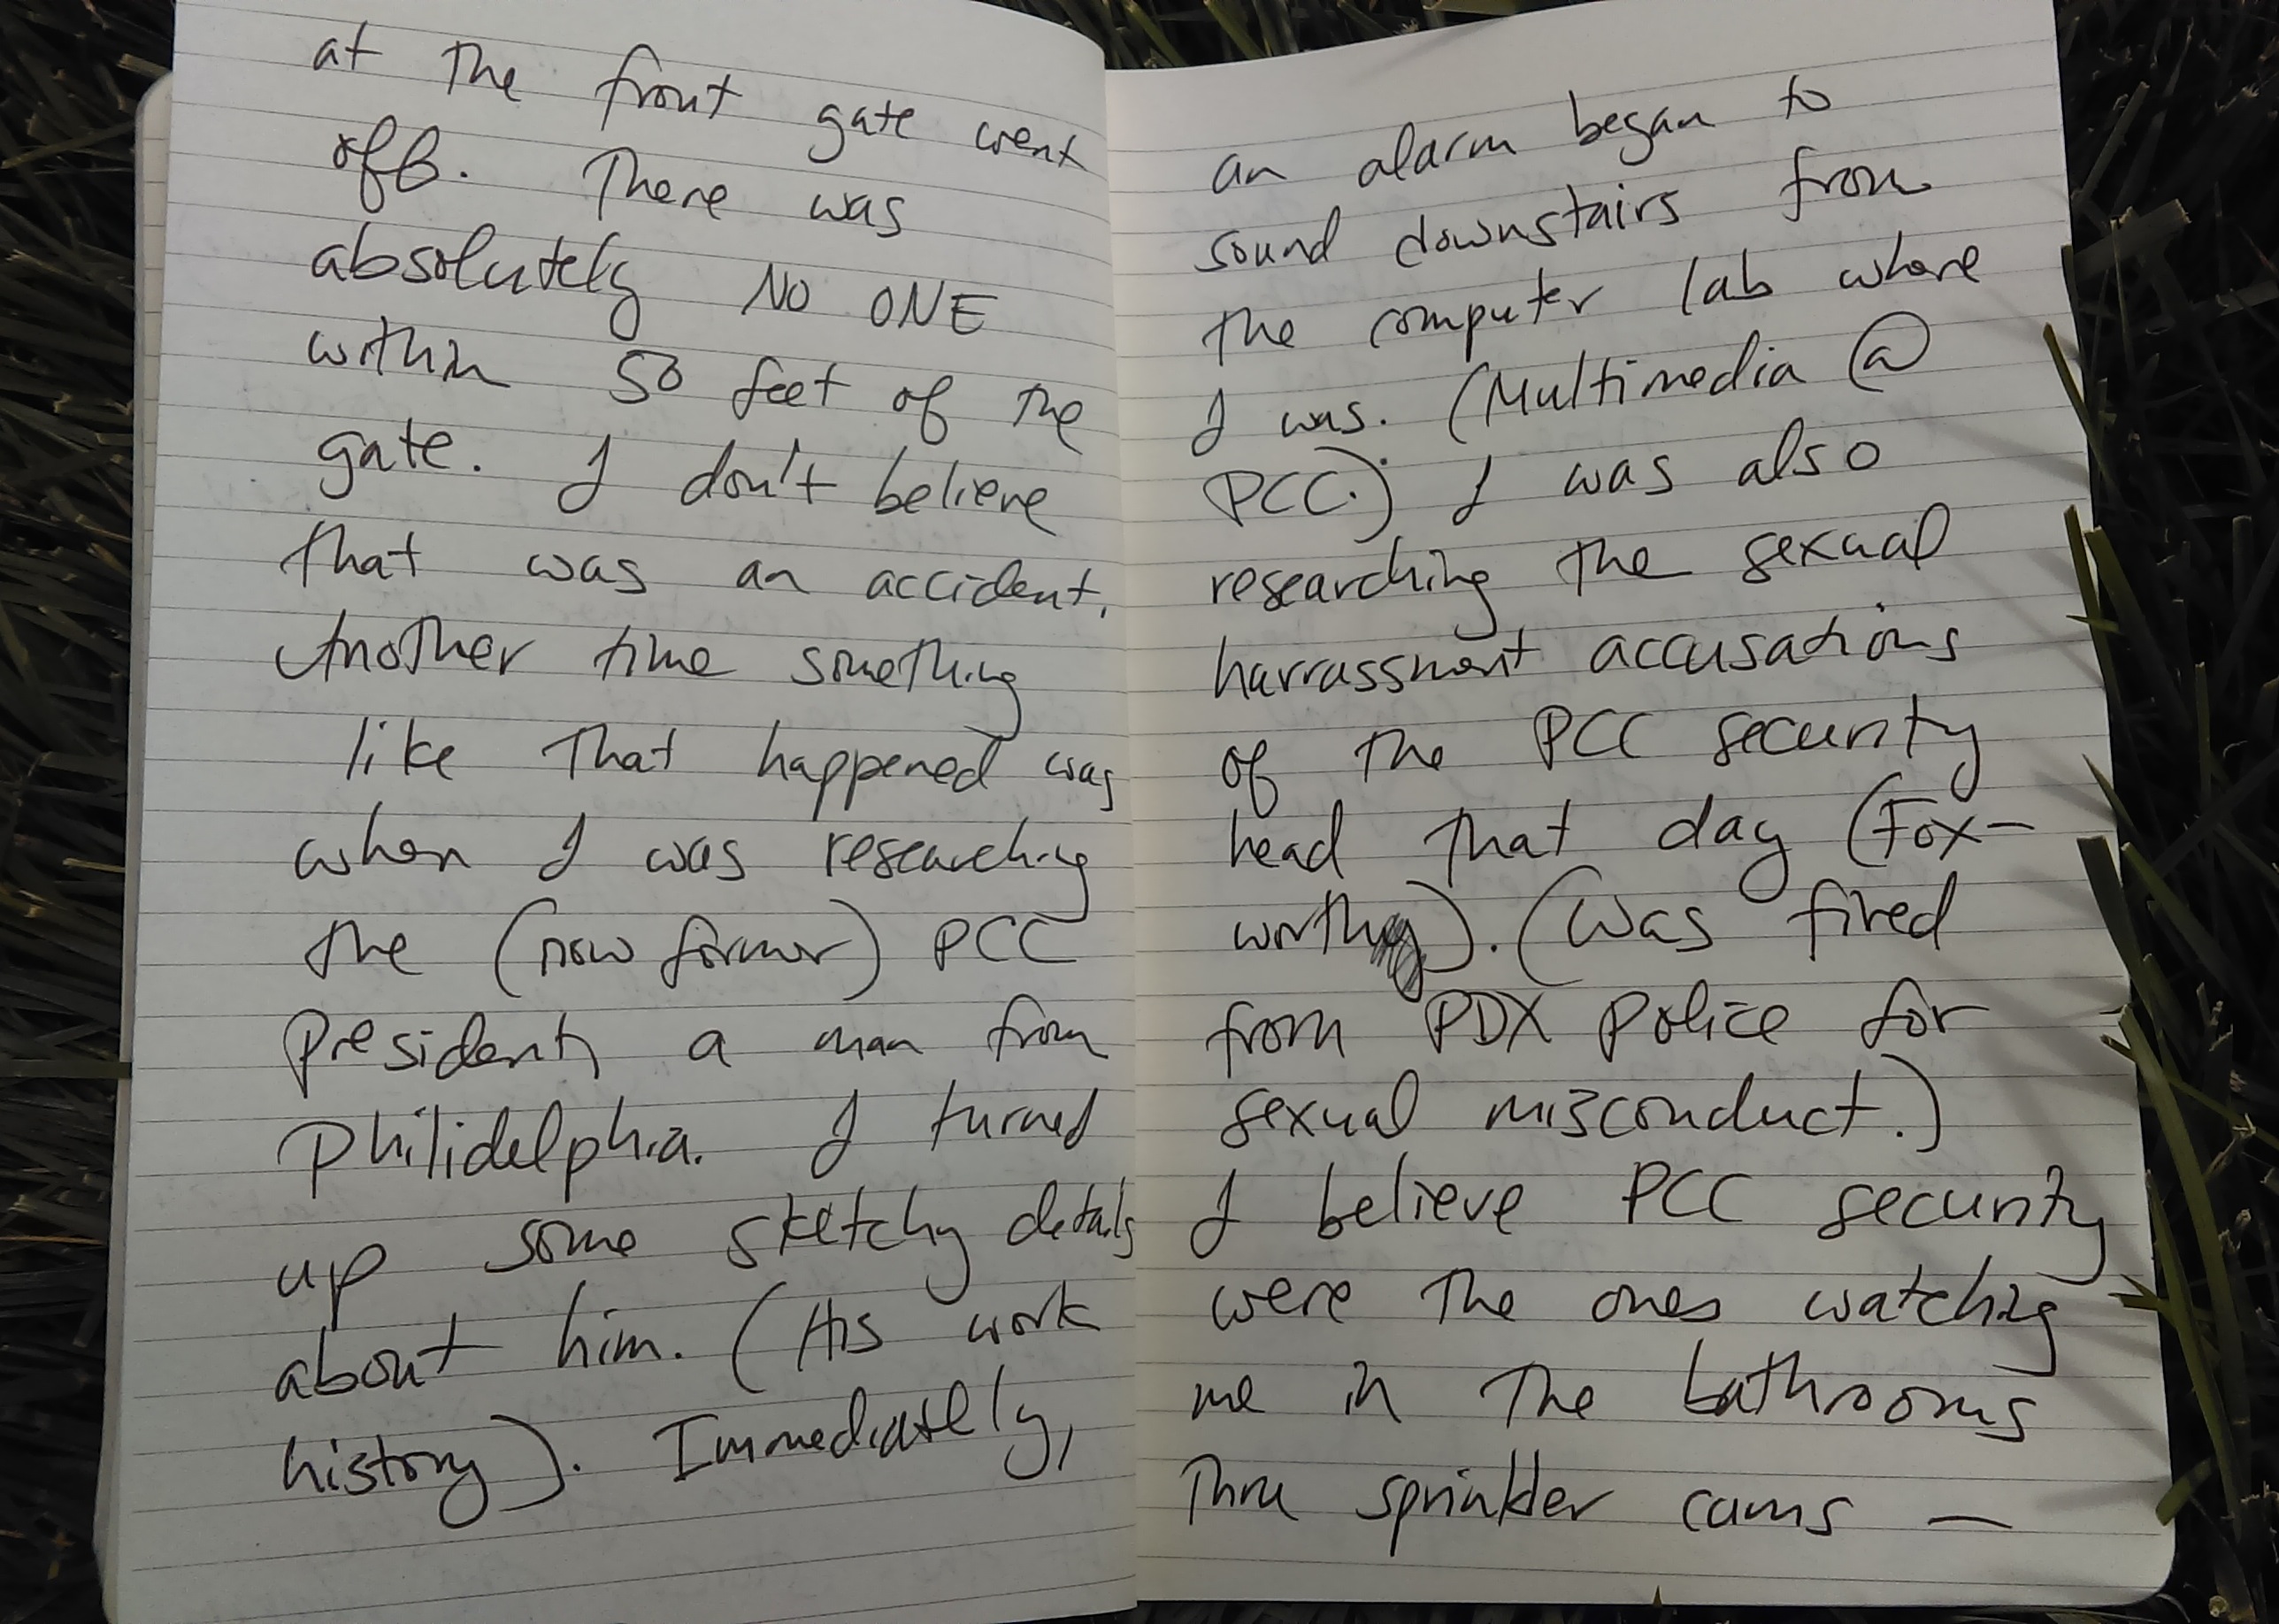 at the front gate went
off. There was
absolutely NO ONE
within 50 feet of the
gate. I don't believe
that was an accident.
Another time something
like that happened was
when I was researching
the (now former) PCC
President, a man from
Philidelphia. I turned
up some sketchy details
about him. (His work
history). Immediately,
an alarm began to
sound downstairs from
the computer lab where
I was. (Multimedia @
PCC.) I was also
researching the sexual
harrassment accusations
of the PCC security
head that day (Fox-
worthy). (Was fired
from PDX Police for
sexual misconduct.)
I believe PCC security
were the ones watching
me in the bathrooms
Thru sprinkler cams —